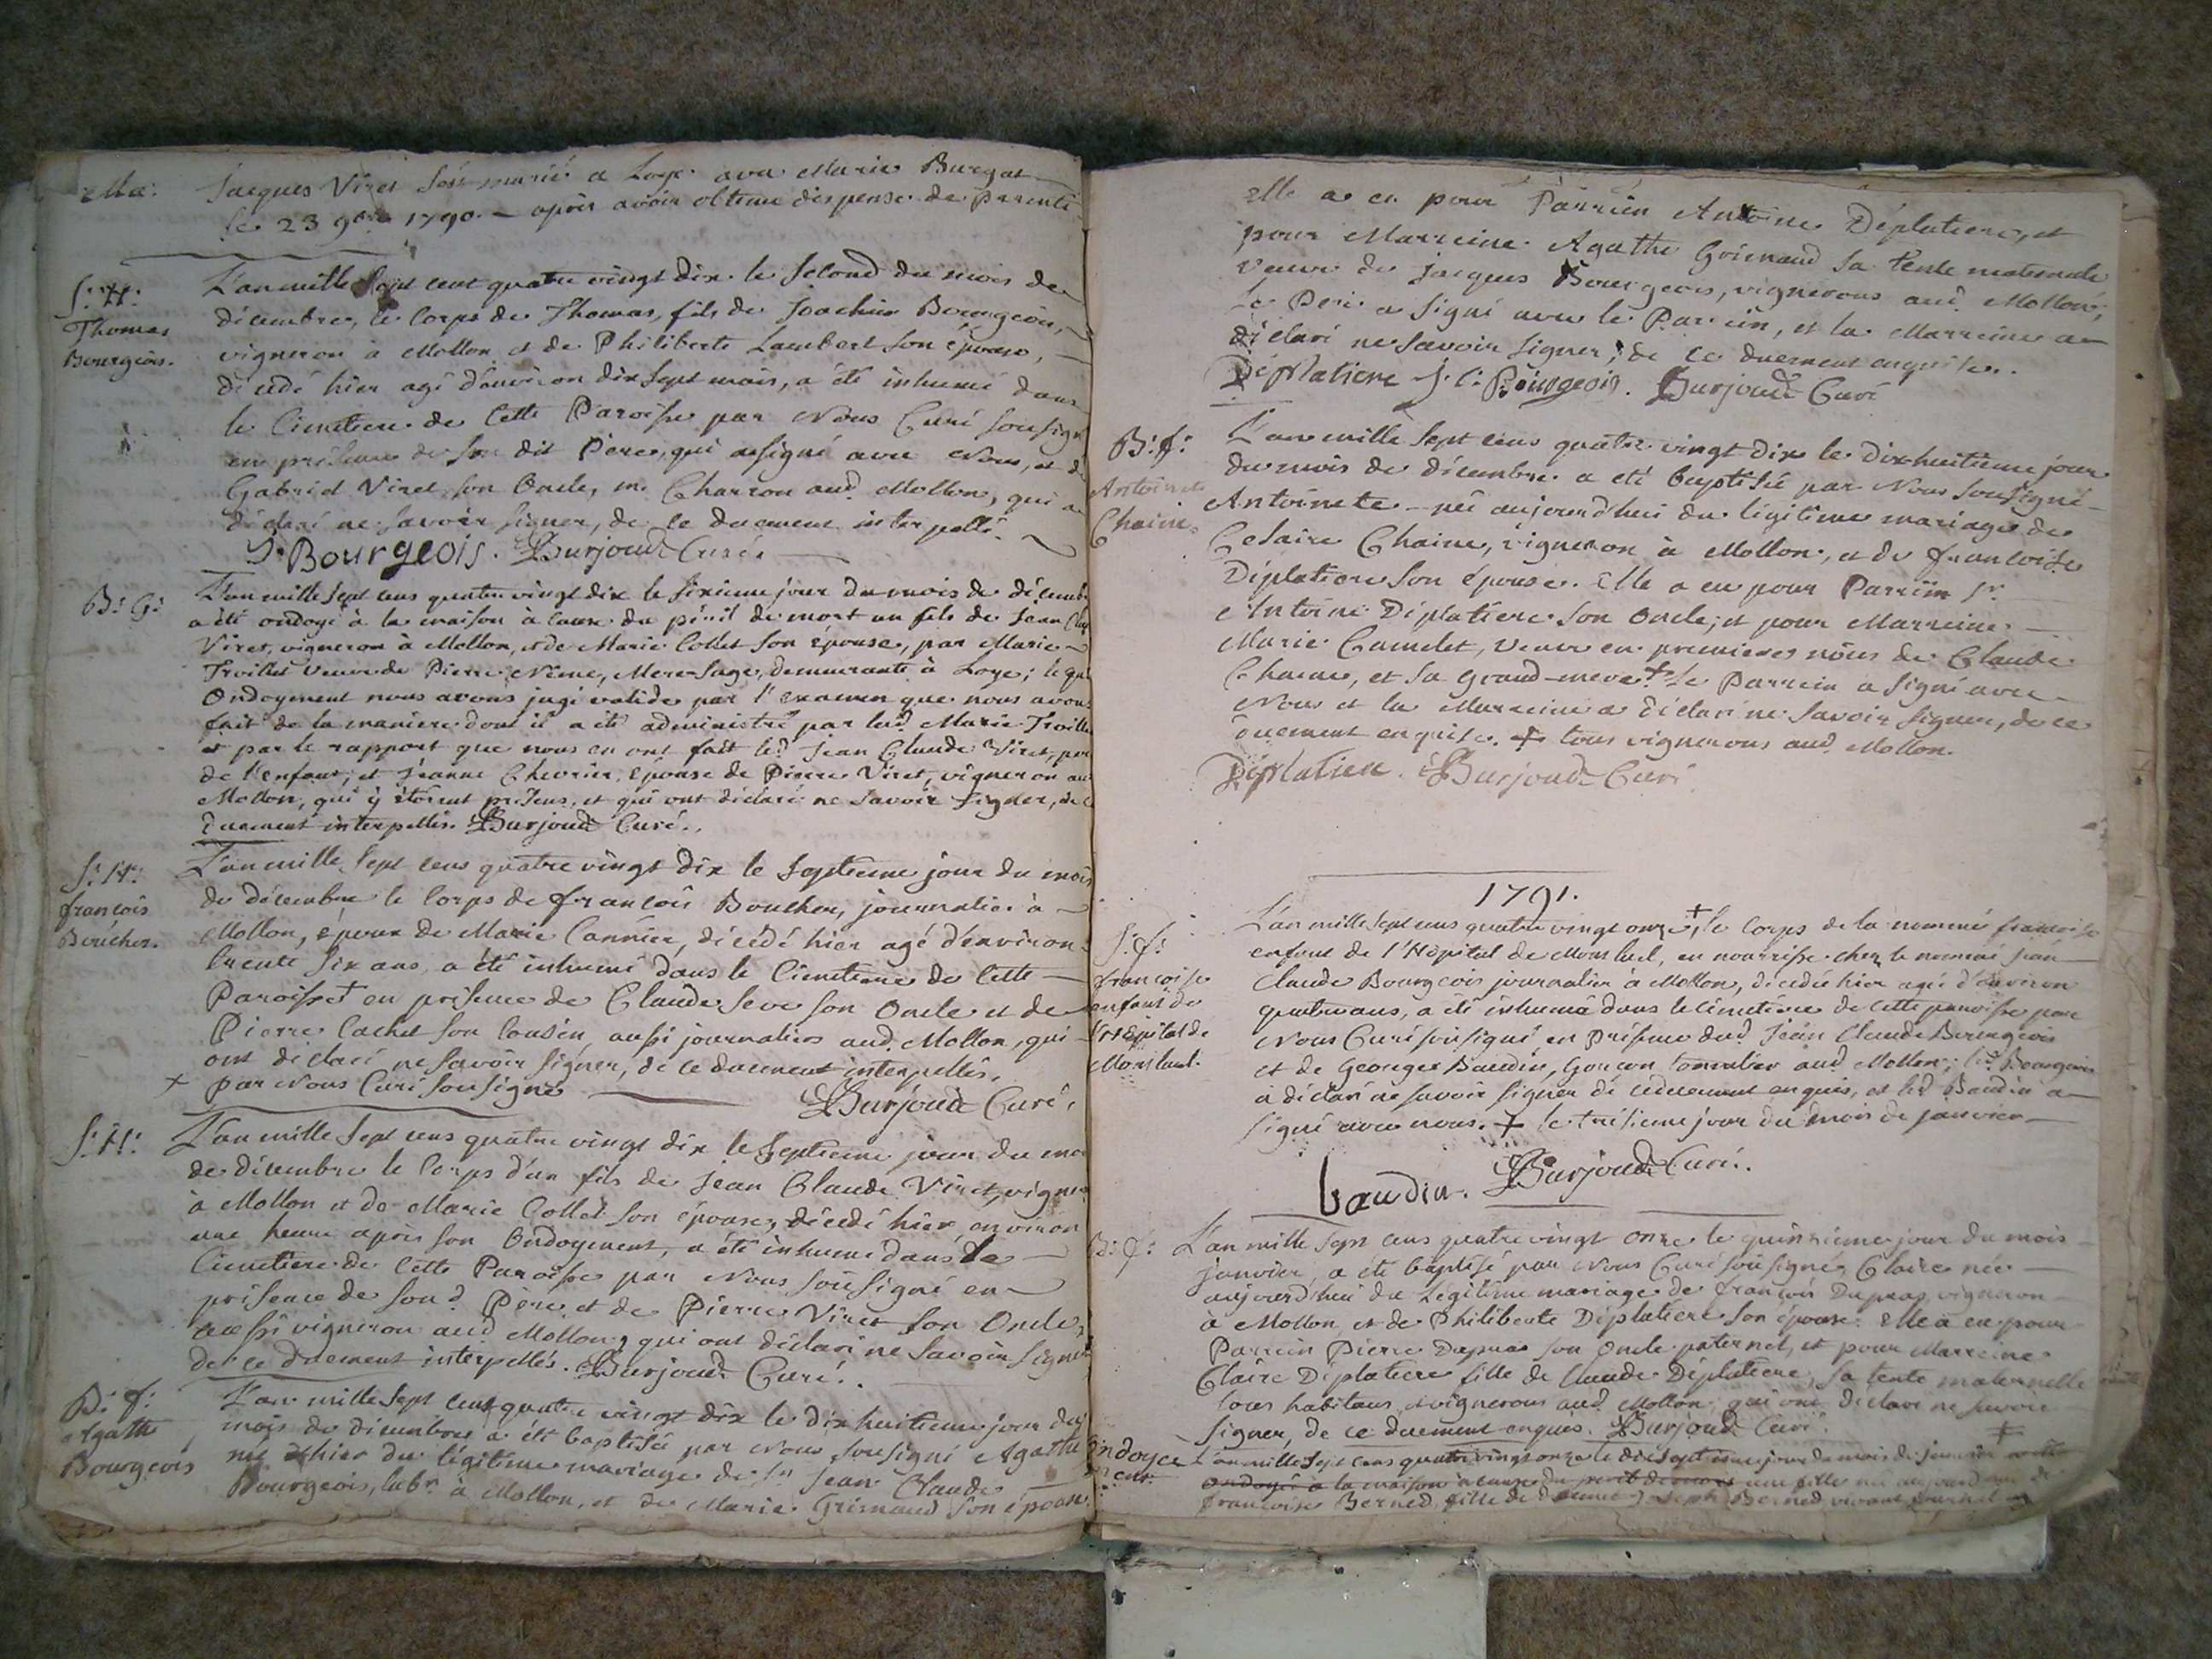 Ma: Jacques Viret s'est marié a Loye avec Marie Burgat
le 23 9bre 1790. – après avoir obtenu dispense de Parenté
S: H: Thomas Bourgeois.
L'an mille sept cent quatre vingt dix le second du mois de
décembre, le corps de Thomas, fils de Joachim Bourgeois,
vigneron à Mollon et de Philiberte Lambert son épouse,
décédé hier agé d'environ dix sept mois, a été inhumé dans
le Cimetiere de cette Paroisse par Nous Curé sousigné
en présence de son dit Père, qui a signé avec Nous, et de
Gabriel Viret son Oncle, me Charron aud. Mollon, qui a
déclaré ne savoir signer, de ce duement interpellé.
J. Bourgeois. Burjoud Curé.
B: G:
L'an mille sept cens quatre vingt dix le sixieme jour du mois de décembre
a été ondoyé à la maison à cause du péril de mort un fils de Jean Claude
Viret, vigneron à Mollon, et de Marie Collet son épouse, par Marie
Troillet veuve de Pierre Nême, Mere-Sage, demeurante à Loye; lequel
Ondoyement nous avons jugé valide par l'examen que nous avons
fait de la maniere dont il a été administré par lad. Marie Troillet
et par le rapport que nous en ont fait led. Jean Claude Viret, pere
de l'enfant, et Jeanne Chevrier, épouse de Pierre Viret, vigneron aud
Mollon, qui y étoient présens, et qui ont déclaré ne savoir signer, de ce
duement interpellés. Burjoud Curé.
S: H: françois Boucher.
L'an mille sept cens quatre vingt dix le septieme jour du mois
de décembre le corps de françois Boucher, journalier à
Mollon, époux de Marie Cannier, décédé hier agé d'environ
trente six ans, a été inhumé dans le Cimetiere de cette
Paroisse + en présence de Claude Seve son Oncle et de
Pierre Cachet son Cousin, aussi journaliers aud. Mollon, qui
ont déclaré ne savoir signer, de ce duement interpellés.
+ par Nous Curé sousigné Burjoud Curé.
S: H:
L'an mille sept cens quatre vingt dix le septieme jour du mois
de décembre le corps d'un fils de Jean Claude Viret, vigneron
à Mollon et de Marie Collet son épouse, décédé hier environ
une heure après son Ondoyement, a été inhumé dans le
Cimetiere de cette Paroisse par Nous sousigné en
présence de sond. Père et de Pierre Viret son Oncle,
aussi vigneron aud Mollon, qui ont déclaré ne savoir signer
de ce duement interpellés. Burjoud Curé.
B: f: Agathe Bourgeois
L'an mille sept cens quatre vingt dix le dix huitieme jour du
mois de Décembre a été baptisée par Nous sousigné Agathe
née hier du légitime mariage de Sr Jean Claude
Bourgeois, labr. à Mollon, et de Marie Grimaud son épouse
elle a eu pour Parrein Antoine Déplatiere, et
pour Marreine Agathe Grimaud sa tente maternelle
veuve de jacques Bourgeois, vignerons aud. Mollon,
Le Pere a signé avec le Parrein, et la Marreine a
déclaré ne savoir signer, de ce duement enquise.
Déplatiere J. C. Bourgeois. Burjoud Curé
B: f: Antoinete Chaine
L'an mille sept cens quatre vingt dix le dix huitieme jour
du mois de décembre a été baptisée par Nous sousigné
Antoinete – née aujourd'hui du légitime mariage de
Cesaire Chaine, vigneron à Mollon, et de françoise
Déplatiere son épouse. Elle a eu pour Parrein Sr.
Antoine Déplatiere son Oncle, et pour Marreine
Marie Camelet, veuve en premieres nôces de Claude
Chaine, et sa grand-mere + Le Parrein a signé avec
Nous et la Marreine a déclaré ne savoir signer, de ce
duement enquise. + tous vignerons aud. Mollon.
Déplatiere. Burjoud Curé
1791.
S: f: françoise enfant de l'Hôpital de Montluel.
L'an mille sept cens quatre vingt onze, + le corps de la nommée françoise
enfant de l'Hôpital de Montluel, en nourrisse chez le nommé jean
Claude Bourgeois journalier à Mollon, décédée hier agée d'environ
quatre ans, a été inhumée dans le cimetiere de cette paroisse par
Nous Curé sousigné en présence dud. Jean Claude Bourgeois
et de Georges Baudin, Garçon tonnelier aud Mollon; led. Bourgeois
a déclaré ne savoir signer de ce duement enquis, et led. Baudin a
signé avec nous. + le treisieme jour du mois de janvier
baudin. Burjoud Curé.
B: f:
L'an mille sept cens quatre vingt onze le quinzieme jour du mois
janvier, a été baptisé par Nous Curé sousigné Claire née
aujourd'hui du Légitime mariage de françois Dupras vigneron
à Mollon, et de Philiberte Déplatiere son épouse. Elle a eu pour
Parrein Pierre Dupras son Oncle paternel, et pour Marreine
Claire Déplatiere fille de Claude Déplatiere, sa tente maternelle
tous habitans, et vignerons aud. Mollon, qui ont déclaré ne savoir
signer, de ce duement enquis. Burjoud Curé.
L'an mille sept cens quatre vingt onze le dix sept ieme jour du mois de janvier
ondoyé à la maison à cause du peril de mort une fille née aujourd'hui de
françoise Berned fille de Joseph Berned vivant journalier